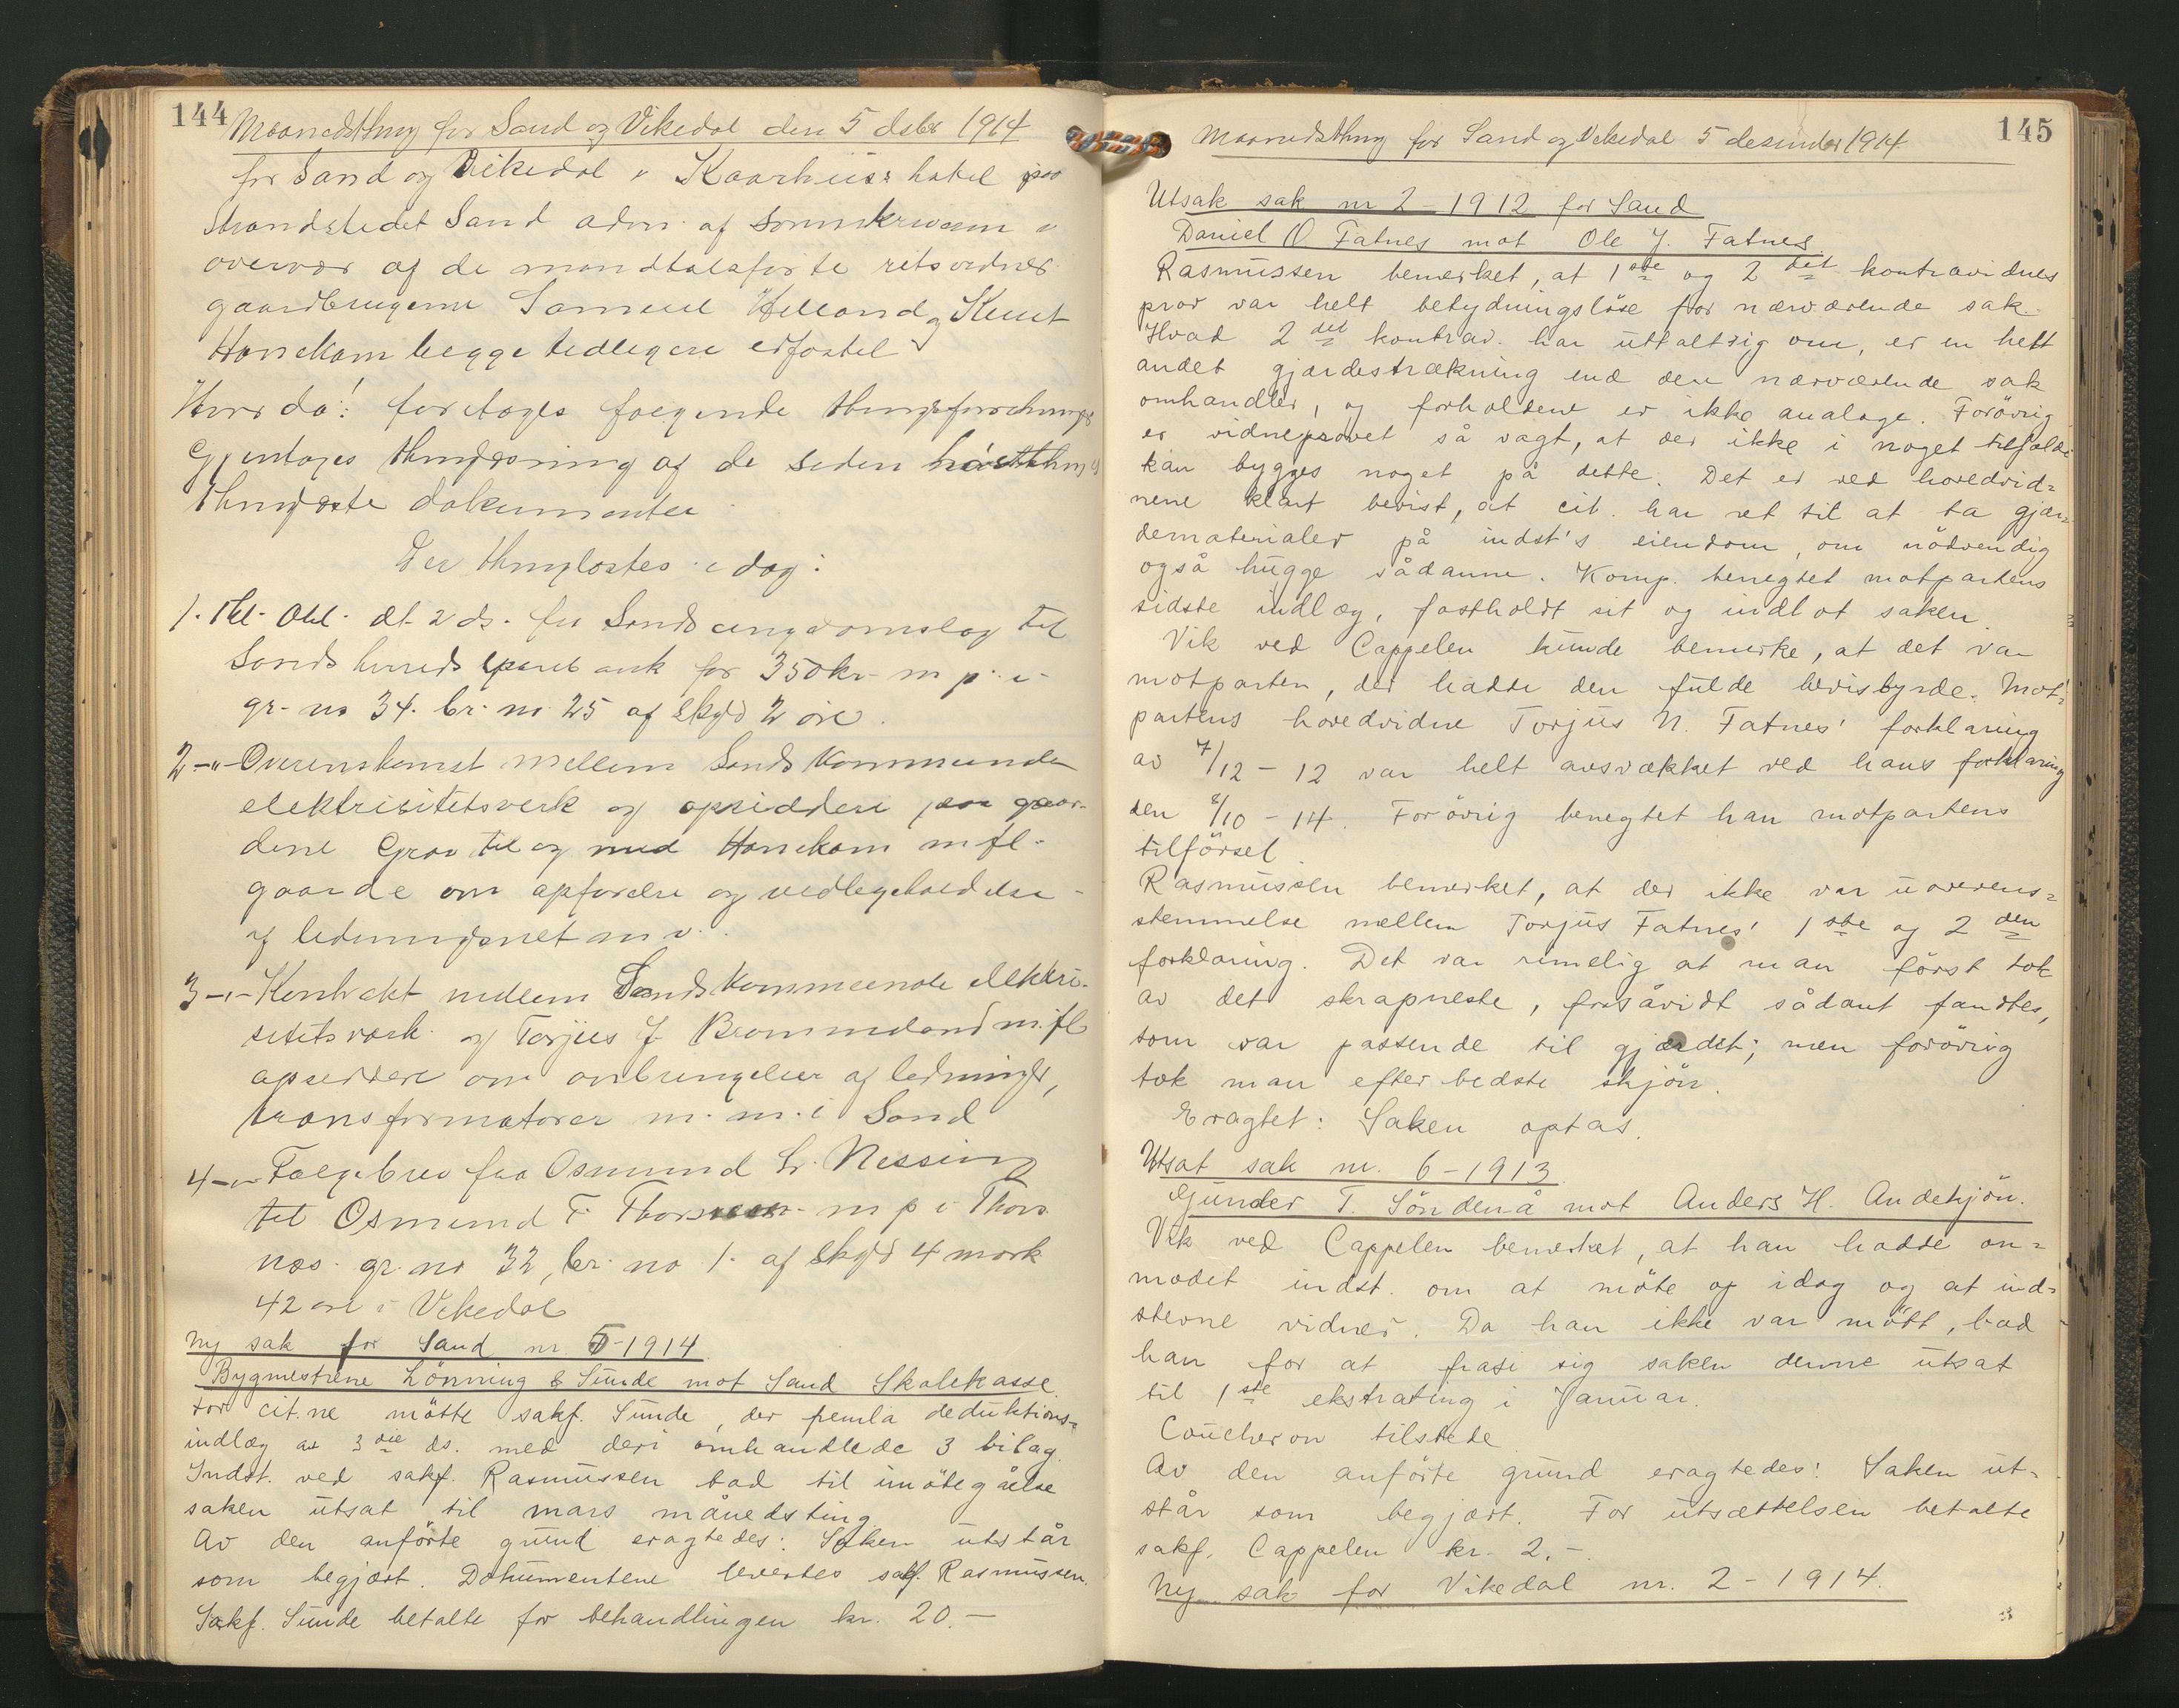 144
Maanedsthing for Sand og Vikedal den 5 dsbr 1914
for Sand og Vikedal i Kaarhuus hotel paa
Strandstedet Sand adm. af sorenskriveren i
overvær af de mandtalsførte retsvidner
gaardbrugerne Samuel Helland og Knut
Hanekam begge tidligere
Hvor da: foretages følgende thingsforretninger
Gjentages thinglæsning af de siden høstthinget
thinglæste dokumenter
Der thinglæstes idag:
1. Thl. Obl. dt 2 ds. fra Sands ungdomslag til
Sands herreds sparebank for 350 kr. m p. i
gr. no 34. br. no. 25 af skyld 2 øre.
2 -"- Overenskomst mellem Sands kommunale
elektrisitetsverk og opsiddere paa gaar-
dene Grov til og med Hanekam m fl.
gaarde om opførelse og vedlegeholdelse
af ledningsnet m v.
3 -"- Kontrakt mellem Sands kommunale elektri-
sitetsværk og Torjus J. Brommeland m. fl
opsiddere om anbringelse af ledninger,
transformatorer m. m. i Sand
4 -"- Følgebrev fra Osmund L. Nessing
til Osmund T. m p i Thors
næs. gr. no 32, br. no 1. af skyld 4 mark
42 øre i Vikedal
Ny sak for Sand nr. 5-1914
Bygmestrene Lönning & Sunde mot Sand Skolekasse.
For cit.ne mötte sakf. Sunde, der fremla deduktions=
indlæg av 3die ds. med deri omhandlede 3 bilag.
Indst. ved sakf. Rasmussen bad til imötegåelse
saken utsat til mars månedsting.
Av den anförte grund eragtedes: Saken utstår
som begjært. Dokumentene levertes sakf. Rasmussen.
Sakf. Sunde betalte for behandlingen kr. 20.-
145
Maanedsthing for Sand og Vikedal 5 desember 1914
Utsak sak nr 2-1912 for Sand
Daniel O Fatnes mot Ole J. Fatnes.
Rasmussen bemerket, at 1ste og 2det kontravidnes
prov var helt betydningslöse for nærværende sak.
Hvad 2det kontrav. har uttalt sig om, er en helt
andet gjærdestrækning end den nærværende sak
omhandler, og forholdene er ikke analoge. Forövrig
er vidneprovet så vagt, at der ikke i noget tilfælde
kan bygges noget på dette. Det er ved hovedvid=
nene klart bevist, at cit. har ret til at ta gjær=
dematerialer på indst's eiendom, om nödvendig
også hugge sådanne. Komp. benegtet motpartens
sidste indlæg, fastholdt sit og indlot saken.
Vik ved Cappelen kunde bemerke, at det var
motparten, der hadde den fulde bevisbyrde. Mot=
partens hovedvidne Torjus N. Fatnes' forklaring
av 7/12 - 12 var helt avsvækket ved hans forklaring
den 8/10 - 14. Forövrig benegtet han motpartens
tilförsel.
Rasmussen bemerket, at der ikke var uoverens=
stemmelse mellem Torjus Fatnes' 1ste og 2den
forklaring. Det var rimelig at man först tok
av det skrapneste, forsåvidt sådant fandtes,
som var passende til gjærdet; men forövrig
tok man efter bedste skjön.
Eragtet: Saken optas.
Utsat sak nr. 6-1913.
Gunder T. Söndenå mot Anders H. Andehjön.
Vik ved Cappelen bemerket, at han hadde an=
modet indst. om at möte op idag og at ind=
stevne vidner. Da han ikke var mött, bad
han for at frasi sig saken denne utsat
til 1ste ekstrating i Januar.
Coucheron tilstede.
Av den anförte grund eragtedes: Saken ut=
står som begjært. For utsættelsen betalte
sakf. Cappelen kr. 2,-.
Ny sak for Vikedal nr. 2-1914.